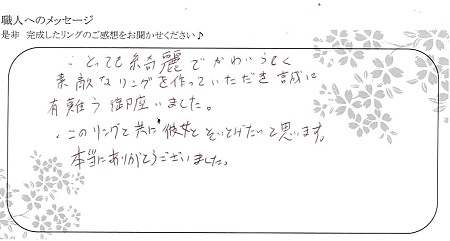 職人へのメッセージ
是非 完成したリングのご感想をお聞かせください♪
・とっても綺麗でかわいらしく
素敵なリングを作っていただき誠に
有難う御座いました。
・このリングと共に彼女とそいとげたいと思います。
本当にありがとうございました。